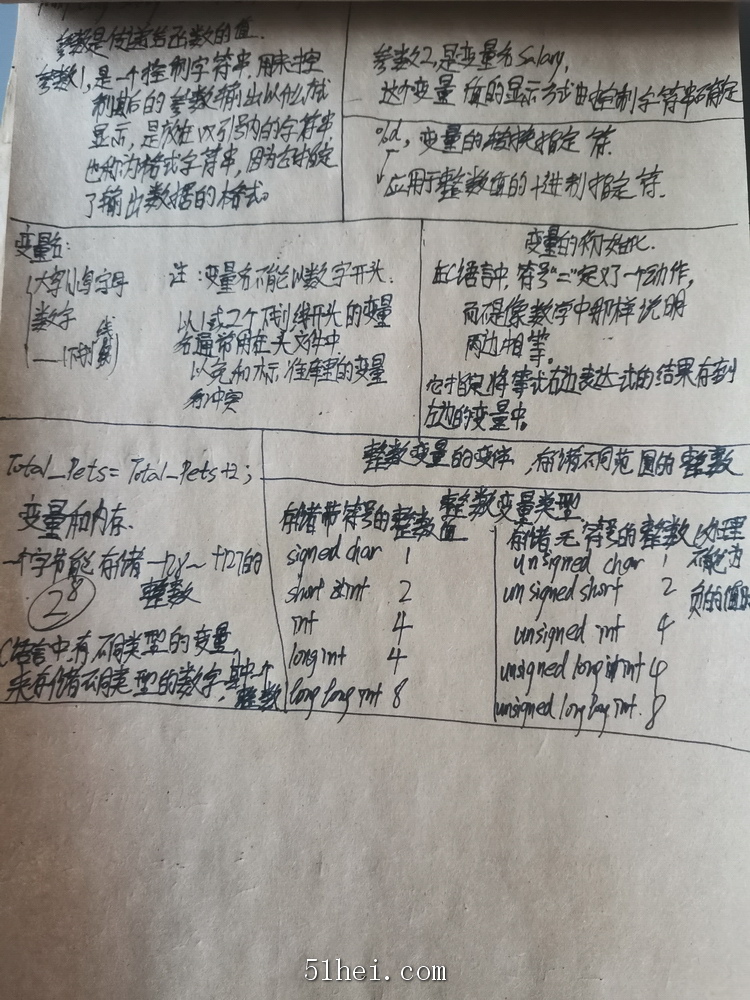 参数是传递给函数的值.
参数1,是一个控制字符串,用来控
制其后的参数输出以什么方式
显示,是放在双引号内的字符串,
也称为格式字符串,因为它指定
了输出数据的格式。
参数2,是变量名salary,
这个变量值的显示方式由控制字符串确定
%d,变量的转换指定符.
应用于整数值的十进制指定符.
变量名:
大写小写字母
数字
__(下划线)
注:变量名不能以数字开头.
以1或2个下划线开头的变量
名通常用在头文件中.
以免和标准库里的变量
名冲突
变量的初始化.
在C语言中,符号"="定义了一个动作,
而不是像数学中那样说明
两边相等。
它指定将等式右边表达式的结果存到
左边的变量中。
Total_Pets= Total_Pets+2;
变量和内存.
一个字节能存储-128~+127的
整数
2⁸
C语言中有不同类型的变量,
来存储不同类型的数字,其中一个
整数
整数变量的变体,存储不同范围的整数
整数变量类型
存储带符号的整数值
signed char 1
short int 2
int 4
long int 4
long long int 8
存储无符号的整数,处理
不能为
负的值时
unsigned char 1
unsigned short 2
unsigned int 4
unsigned long int 4
unsigned long long int. 8
51hei.com